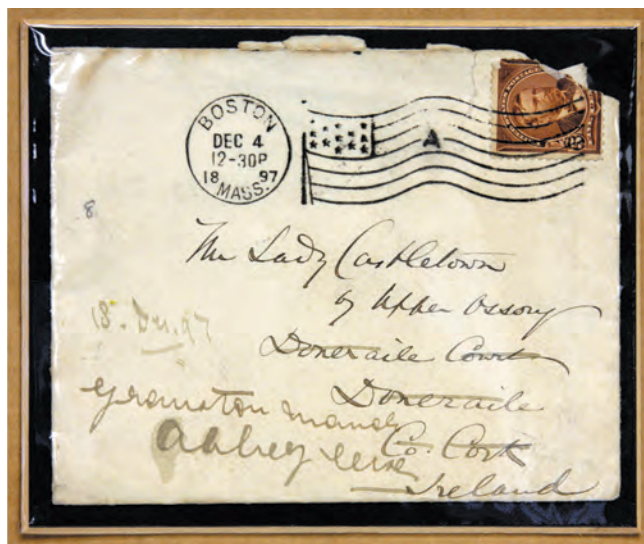 BOSTON
DEC 4
12-30P
18 97
MASS.
A
8
The Lady Castletown
of Upper Ossory
Doneraile Court
Doneraile
Co. Cork
Ireland
18. Dec. 97
Granston Manor
Abbey Leix